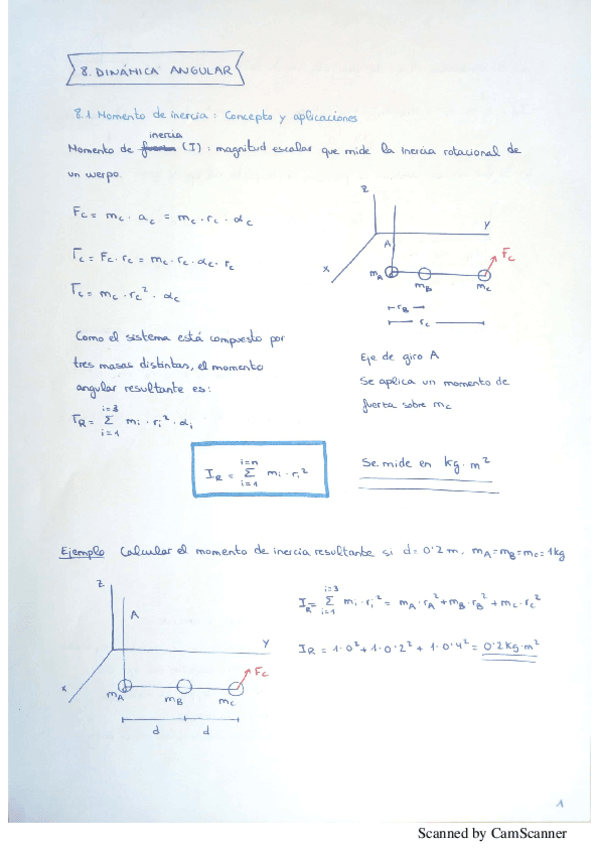 8. DINÁMICA ANGULAR
8.1 Momento de inercia : Concepto y aplicaciones
inercia
Momento de fuerza (I) : magnitud escalar que mide la inercia rotacional de
un cuerpo.
Fc = mc · ac = mc · rc · αc
Γc = Fc · rc = mc · rc · αc · rc
Γc = mc · rc² · αc
Z
Y
A
X
Fc
mA
mB
mc
rB
rc
Como el sistema está compuesto por
tres masas distintas, el momento
angular resultante es:
i=3
ΓR = Σ mi · ri² · αi
i=1
Eje de giro A
Se aplica un momento de
fuerza sobre mc
i=n
IR = Σ mi · ri²
i=1
Se mide en kg · m²
Ejemplo Calcular el momento de inercia resultante si d = 0'2 m. mA = mB = mc = 1kg
Z
A
Y
X
Fc
mA
mB
mc
d
d
i=3
IR = Σ mi · ri² = mA · rA² + mB · rB² + mc · rc²
i=1
IR = 1 · 0² + 1 · 0'2² + 1 · 0'4² = 0'2 kg · m²
1
Scanned by CamScanner